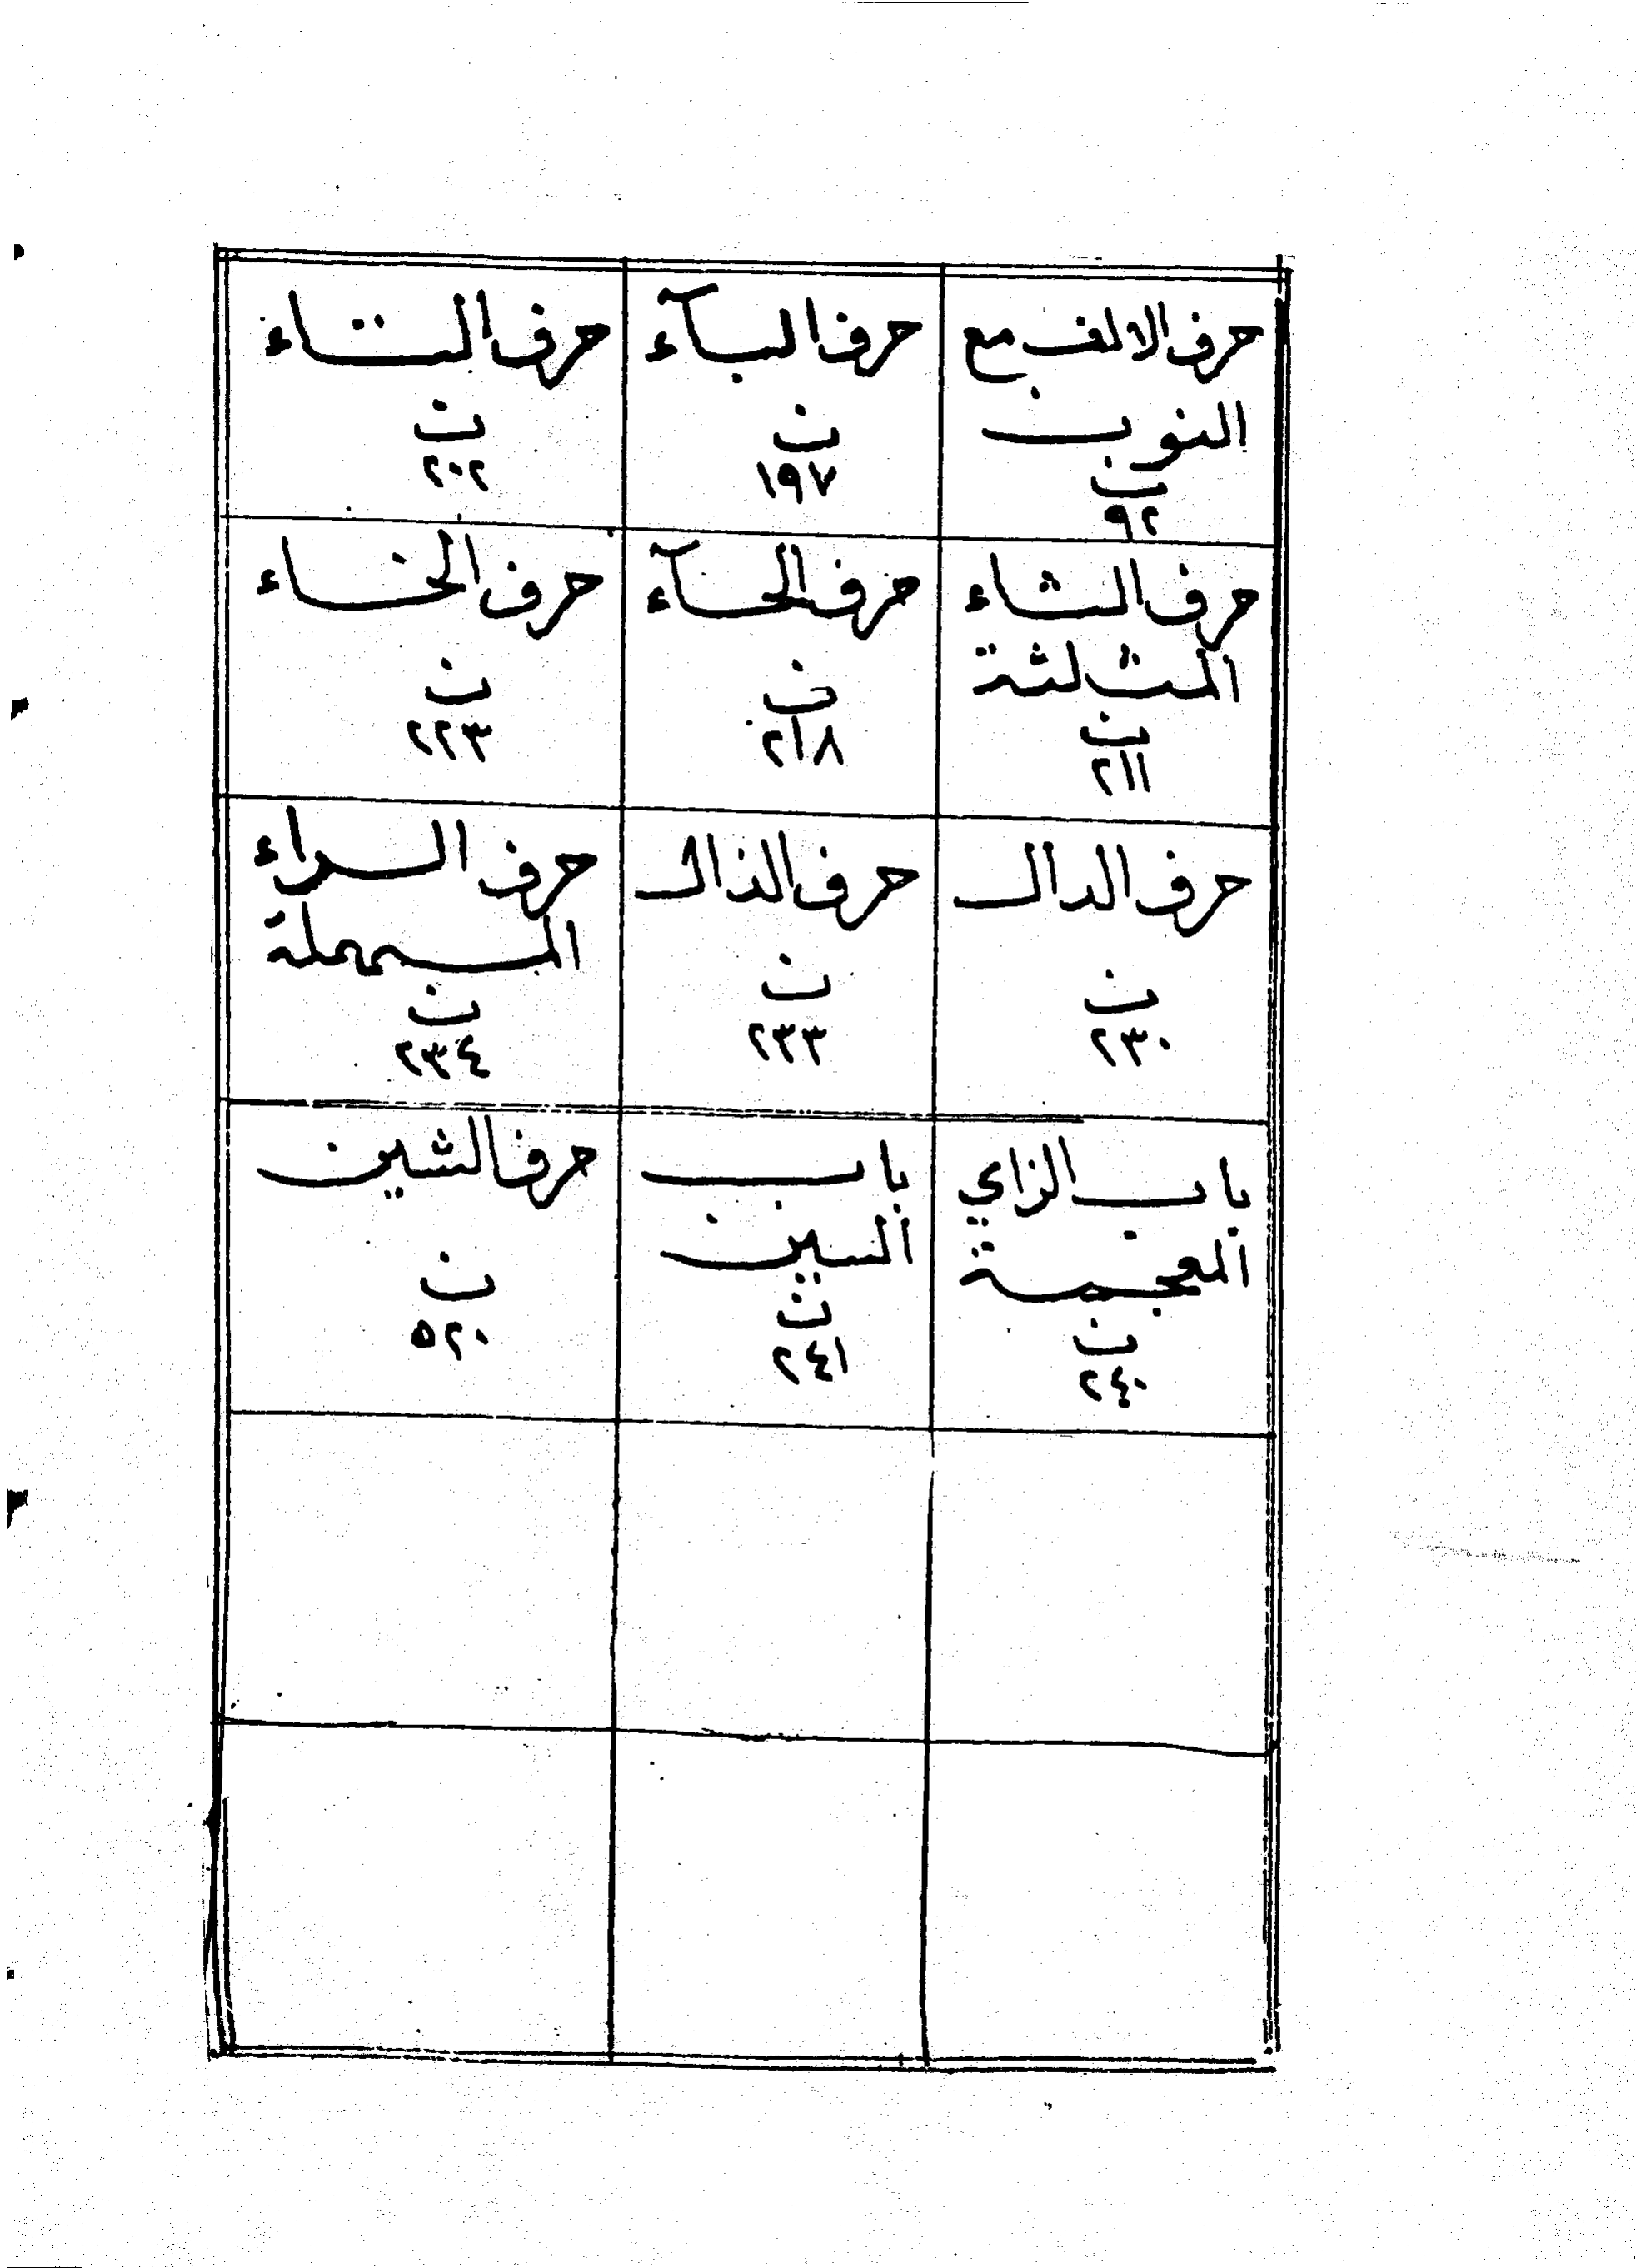 حرف الالف مع
النون
ن
٩٢
حرف البآء
ن
١٩٧
حرف التاء
ن
٢٠٢
حرف الثاء
المثلثة
ن
٢١١
حرف الحآء
ن
٢١٨
حرف الخاء
ن
٢٢٣
حرف الدال
ن
٢٣٠
حرف الذال
ن
٢٣٣
حرف الراء
المهملة
ن
٢٣٤
باب الزاي
المعجمة
ن
٢٤٠
باب
السين
ن
٢٤١
حرف الشين
ن
٥٢٠